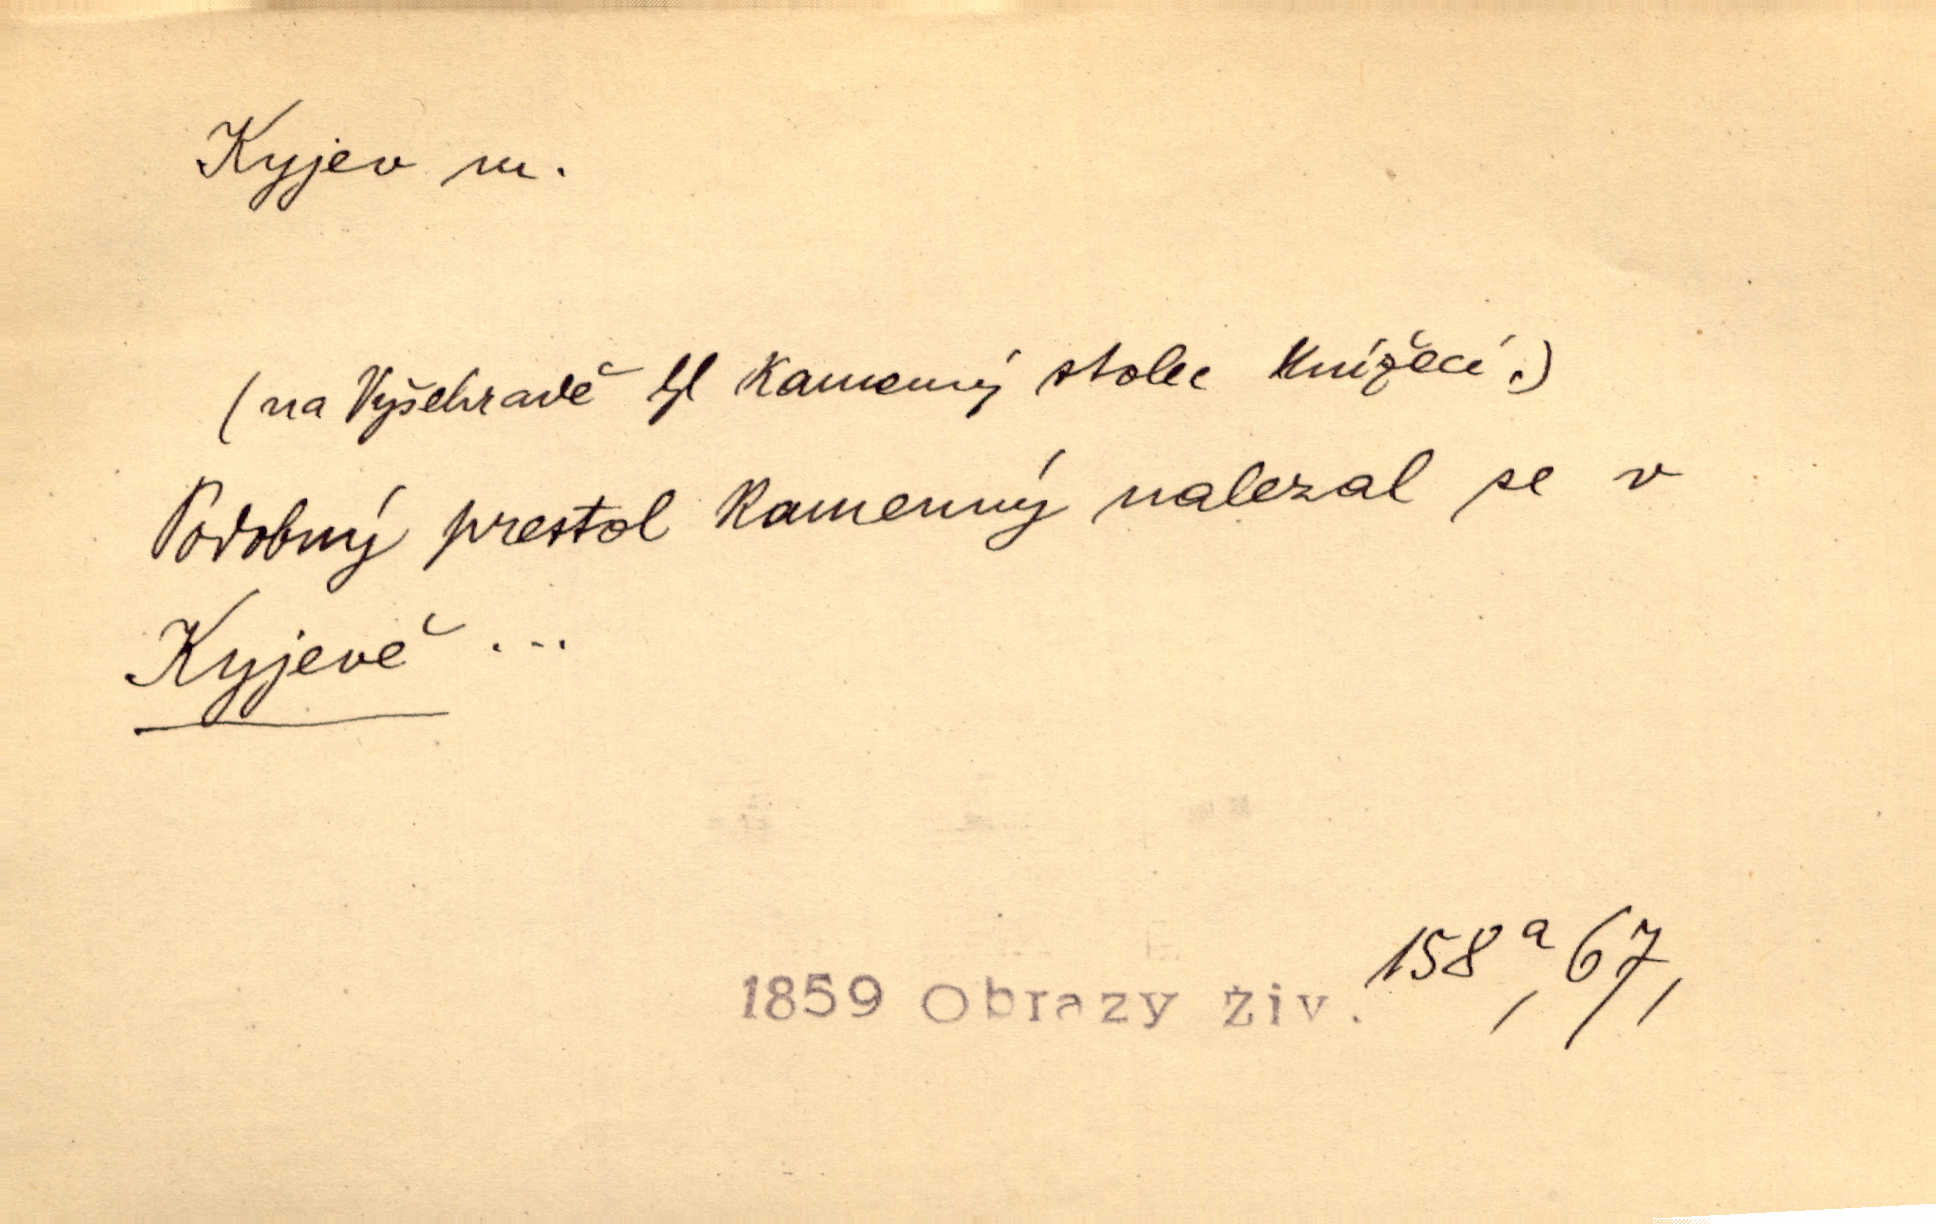 Kyjev m.
(na Vyšehradě byl kamenný stolec knížecí.)
Podobný prestol kamenný nalezal se v
Kyjevě ...
158a, 67,
1859 Obrazy živ.